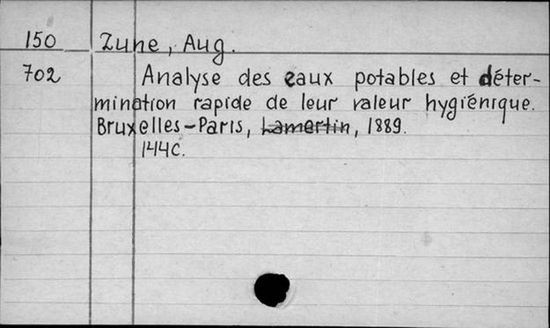 150 Zune, Aug.
702 Analyse des eaux potables et déter-
mination rapide de leur valeur hygiénique.
Bruxelles-Paris, Lamertin, 1889.
144C.